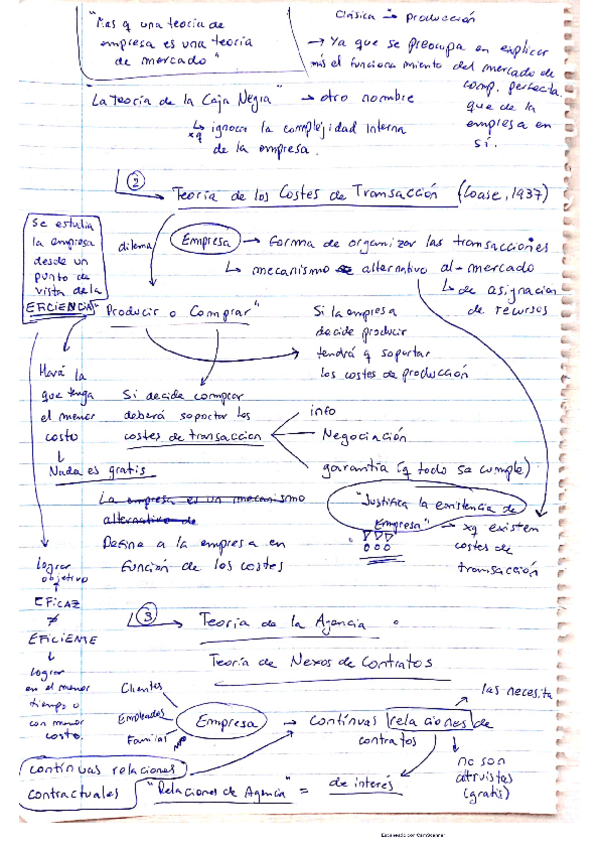 "Mas q una teoría de
empresa es una teoría
de mercado"
Clásica → producción
→ Ya que se preocupa en explicar
más el funcionamiento del mercado de
comp. perfecta
que de la
empresa en
sí.
"La Teoría de la Caja Negra" → otro nombre
xq ignora la complejidad interna
de la empresa.
② Teoría de los Costes de Transacción (Coase, 1937)
Se estudia
la empresa
desde un
punto de
vista de la
EFICIENCIA
dilema
Empresa → forma de organizar las transacciones
↳ mecanismo alternativo al mercado
↳ de asignación
de recursos
"Producir o Comprar"
Si la empresa
decide producir
tendrá q soportar
los costes de producción
Hará la
que tenga
el menor
costo
↓
Nada es gratis
Si decide comprar
deberá soportar los
costes de transacción
info
Negociación
garantía (q todo se cumple)
La empresa es un mecanismo
alternativo de
Define a la empresa en
función de los costes
"Justifica la existencia de
Empresa" → xq existen
costes de
transacción
!!!
lograr
objetivo
↑
EFICAZ
≠
EFICIENTE
↓
lograr
en el menor
tiempo o
con menor
costo.
③ Teoría de la Agencia
Teoría de Nexos de Contratos
Clientes
Empleados
Familias
Empresa → contínuas relaciones de
contratos
las necesita
no son
altruistas
(gratis)
contínuas relaciones
contractuales
"Relaciones de Agencia" = de interés
Escaneado por CamScanner